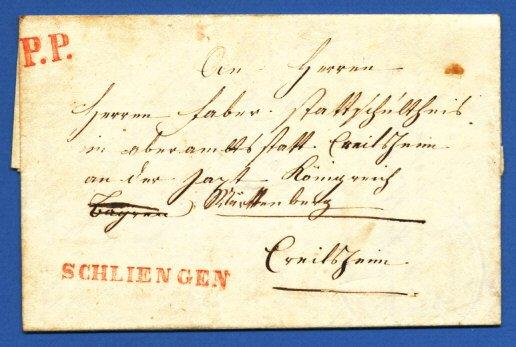 P.P.
An Herren
Herren Faber stattschultheis
in oberamts statt Creilsheim
an der Jaxt Königreich
Bayren Württenberg
Creilsheim
SCHLIENGEN